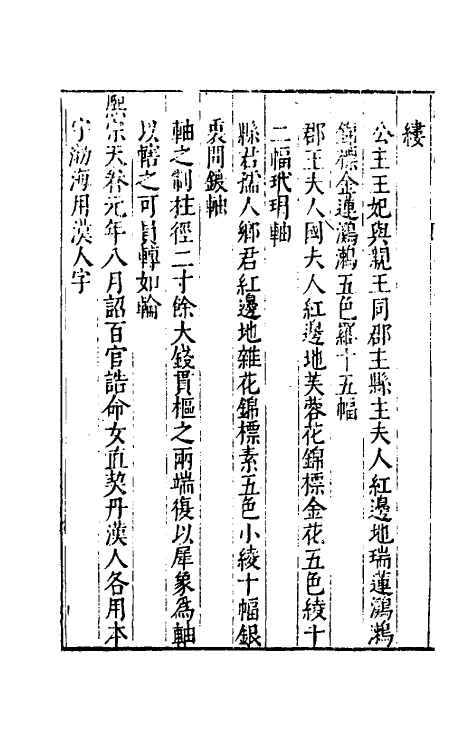 縷
公主王妃與親王同郡主縣主夫人紅邊地瑞蓮鸂鶒
錦標金蓮鸂鶒五色羅十五幅
郡王夫人國夫人紅邊地芙蓉花錦標金花五色綾十
二幅玳瑁軸
縣君孺人鄉君紅邊地雜花錦標素五色小綾十幅銀
裹間鍍軸
軸之制柱徑二寸餘大錢貫樞之兩端復以犀象為軸
以轄之可貟轉如輪
熙宗天眷元年八月詔百官誥命女直契丹漢人各用本
字渤海用漢人字